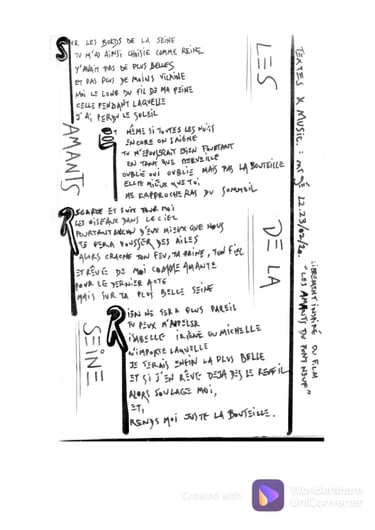 SUR LES BORDS DE LA SEINE
TU M'AS AINSI CHOISIE COMME REINE
Y'AVAIT PAS DE PLUS BELLES
ET PAS PLUS DE MOINS VILAINE
MOI LE LONG DU FIL DE MA PEINE
CELLE PENDANT LAQUELLE
J'AI PERDU LE SOLEIL
ET MÊME SI TOUTES LES NUITS
ENCORE ON SAIGNE
TU M'EPOUSERAIT BIEN POURTANT
EN TANT QUE MERVEILLE
OUBLIE OUI OUBLIE MAIS PAS LA BOUTEILLE
ELLE MIEUX QUE TOI,
ME RAPPROCHERAS DU SOMMEIL
REGARDE ET SUIT POUR MOI
LES OISEAUX DANS LE CIEL
POURTANT AUCUN D'EUX MIEUX QUE NOUS
TE FERA POUSSER DES AILES
ALORS CRACHE TON FEU, TA HAINE, TON FIEL
ET RÊVE DE MOI COMME AMANTE
POUR LE DERNIER ACTE
MAIS SUR TA PLUS BELLE SEINE
RIEN NE SERA PLUS PAREIL
TU PEUX M'APPELER
ISABELLE IRÈNE OU MICHELLE
N'IMPORTE LAQUELLE
JE SERAIS ENFIN LA PLUS BELLE
ET SI J'EN RÊVE DEJA DES LE REVEIL
ALORS SOULAGE MOI,
ET,
RENDS MOI JUSTE LA BOUTEILLE.
LES
AMANTS
DE LA
SEINE
TEXTES & MUSIC. : 22.23/02/20.
LIBREMENT INSPIRÉ DU FILM
"LES AMANTS DU PONT NEUF"
Created with
Wondershare
UniConverter